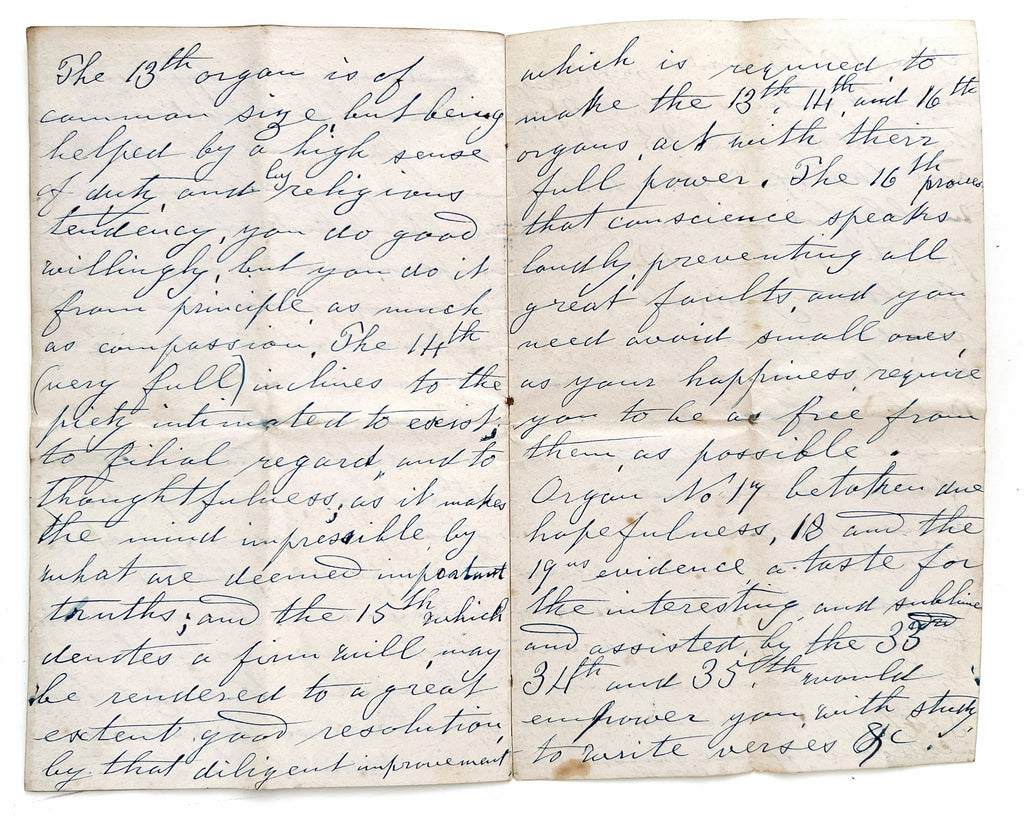 The 13th organ is of
common size, but being
helped by a high sense
of duty, and by religious
tendency, you do good
willingly, but you do it
from principle as much
as compassion. The 14th
(very full) inclines to the
piety intimated to exist,
to filial regard, and to
thoughtfulness, as it makes
the mind impressible by
what are deemed important
truths; and the 15th which
denotes a firm will, may
be rendered to a great
extent good resolution,
by that diligent improvement
which is required to
make the 13th, 14th, and 16th
organs, act with their
full power. The 16th proves
that conscience speaks
loudly, preventing all
great faults, and you
need avoid small ones,
as your happiness, require
you to be as free from
them, as possible.
Organ No 17 betoken due
hopefulness, 18 and the
19 evidence, a taste for
the interesting, and sublime
and assisted, by the 33rd
34th and 35th would
empower you, with study,
to write verses &c.